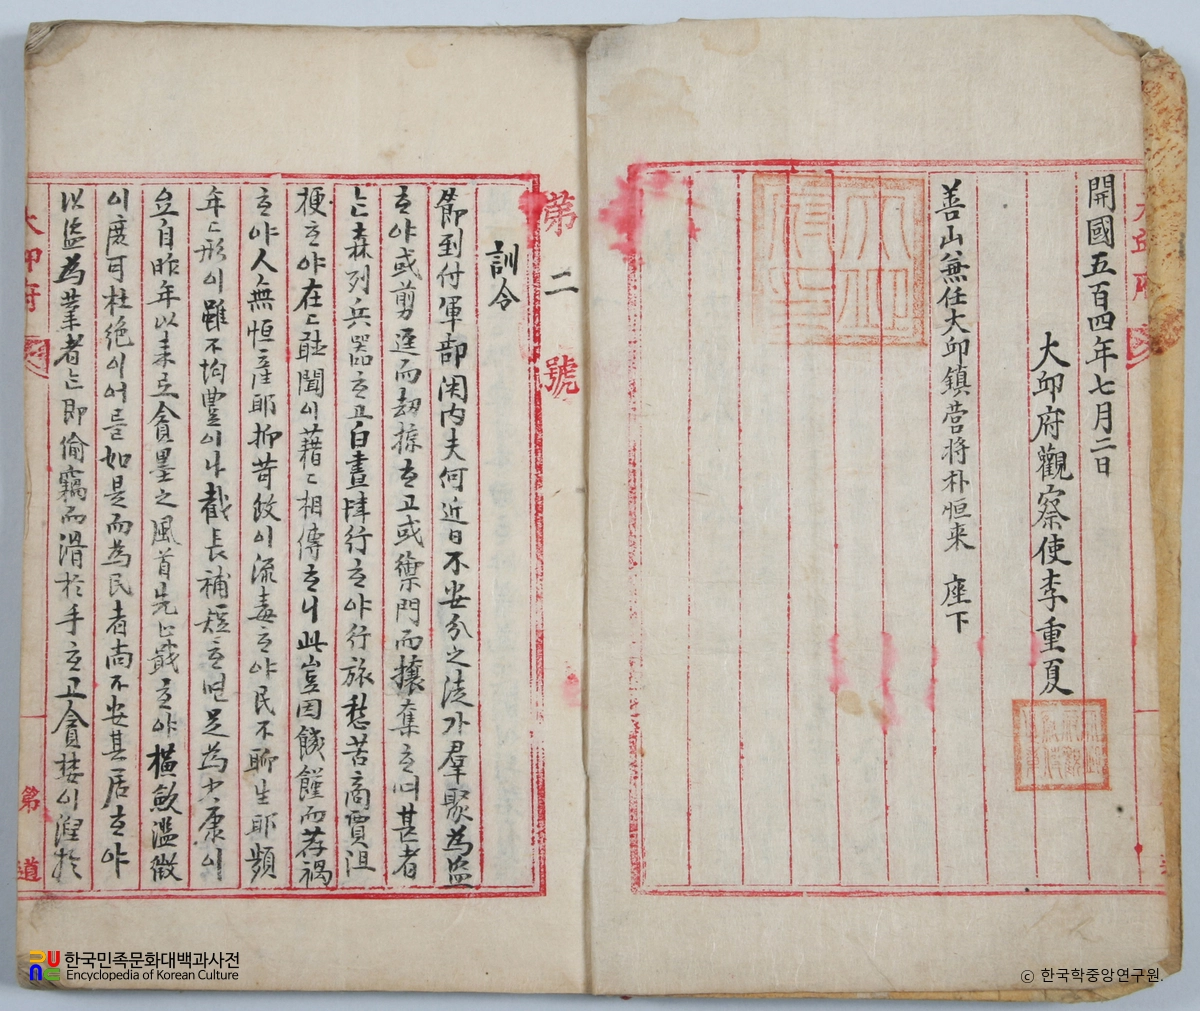 大邱府
開國五百四年七月二日
大邱府觀察使李重夏
善山兼任大邱鎭營將朴恒来 座下
第二號
訓令
節到付軍部関內夫何近日不安分之徒가羣聚為盜
ᄒᆞ야或剪逕而刼掠ᄒᆞ고或禦門而攘奪ᄒᆞ甚者
ᄂᆞᆫ森列兵器ᄒᆞ고白晝肆行ᄒᆞ야行旅愁苦商賈沮
梗ᄒᆞ야在〻聽聞이藉〻相傳ᄒᆞ니此豈因饑饉而荐禍
ᄒᆞ야人無恒産耶抑苛斂이流毒ᄒᆞ야民不聊生耶頻
年〻形이雖不均豊이나截長補短ᄒᆞ면足為少康이
自昨年以来로貪墨之風首先戢ᄒᆞ야橫歛濫徵
이庶可杜絶이어ᄂᆞᆯ如是而為民者尚不安其居ᄒᆞ야
以盜為業者ᄂᆞᆫ即偷竊而滑於手ᄒᆞ고貪婪이湼於
大邱府
第 道
한국민족문화대백과사전
Encyclopedia of Korean Culture
ⓒ 한국학중앙연구원.